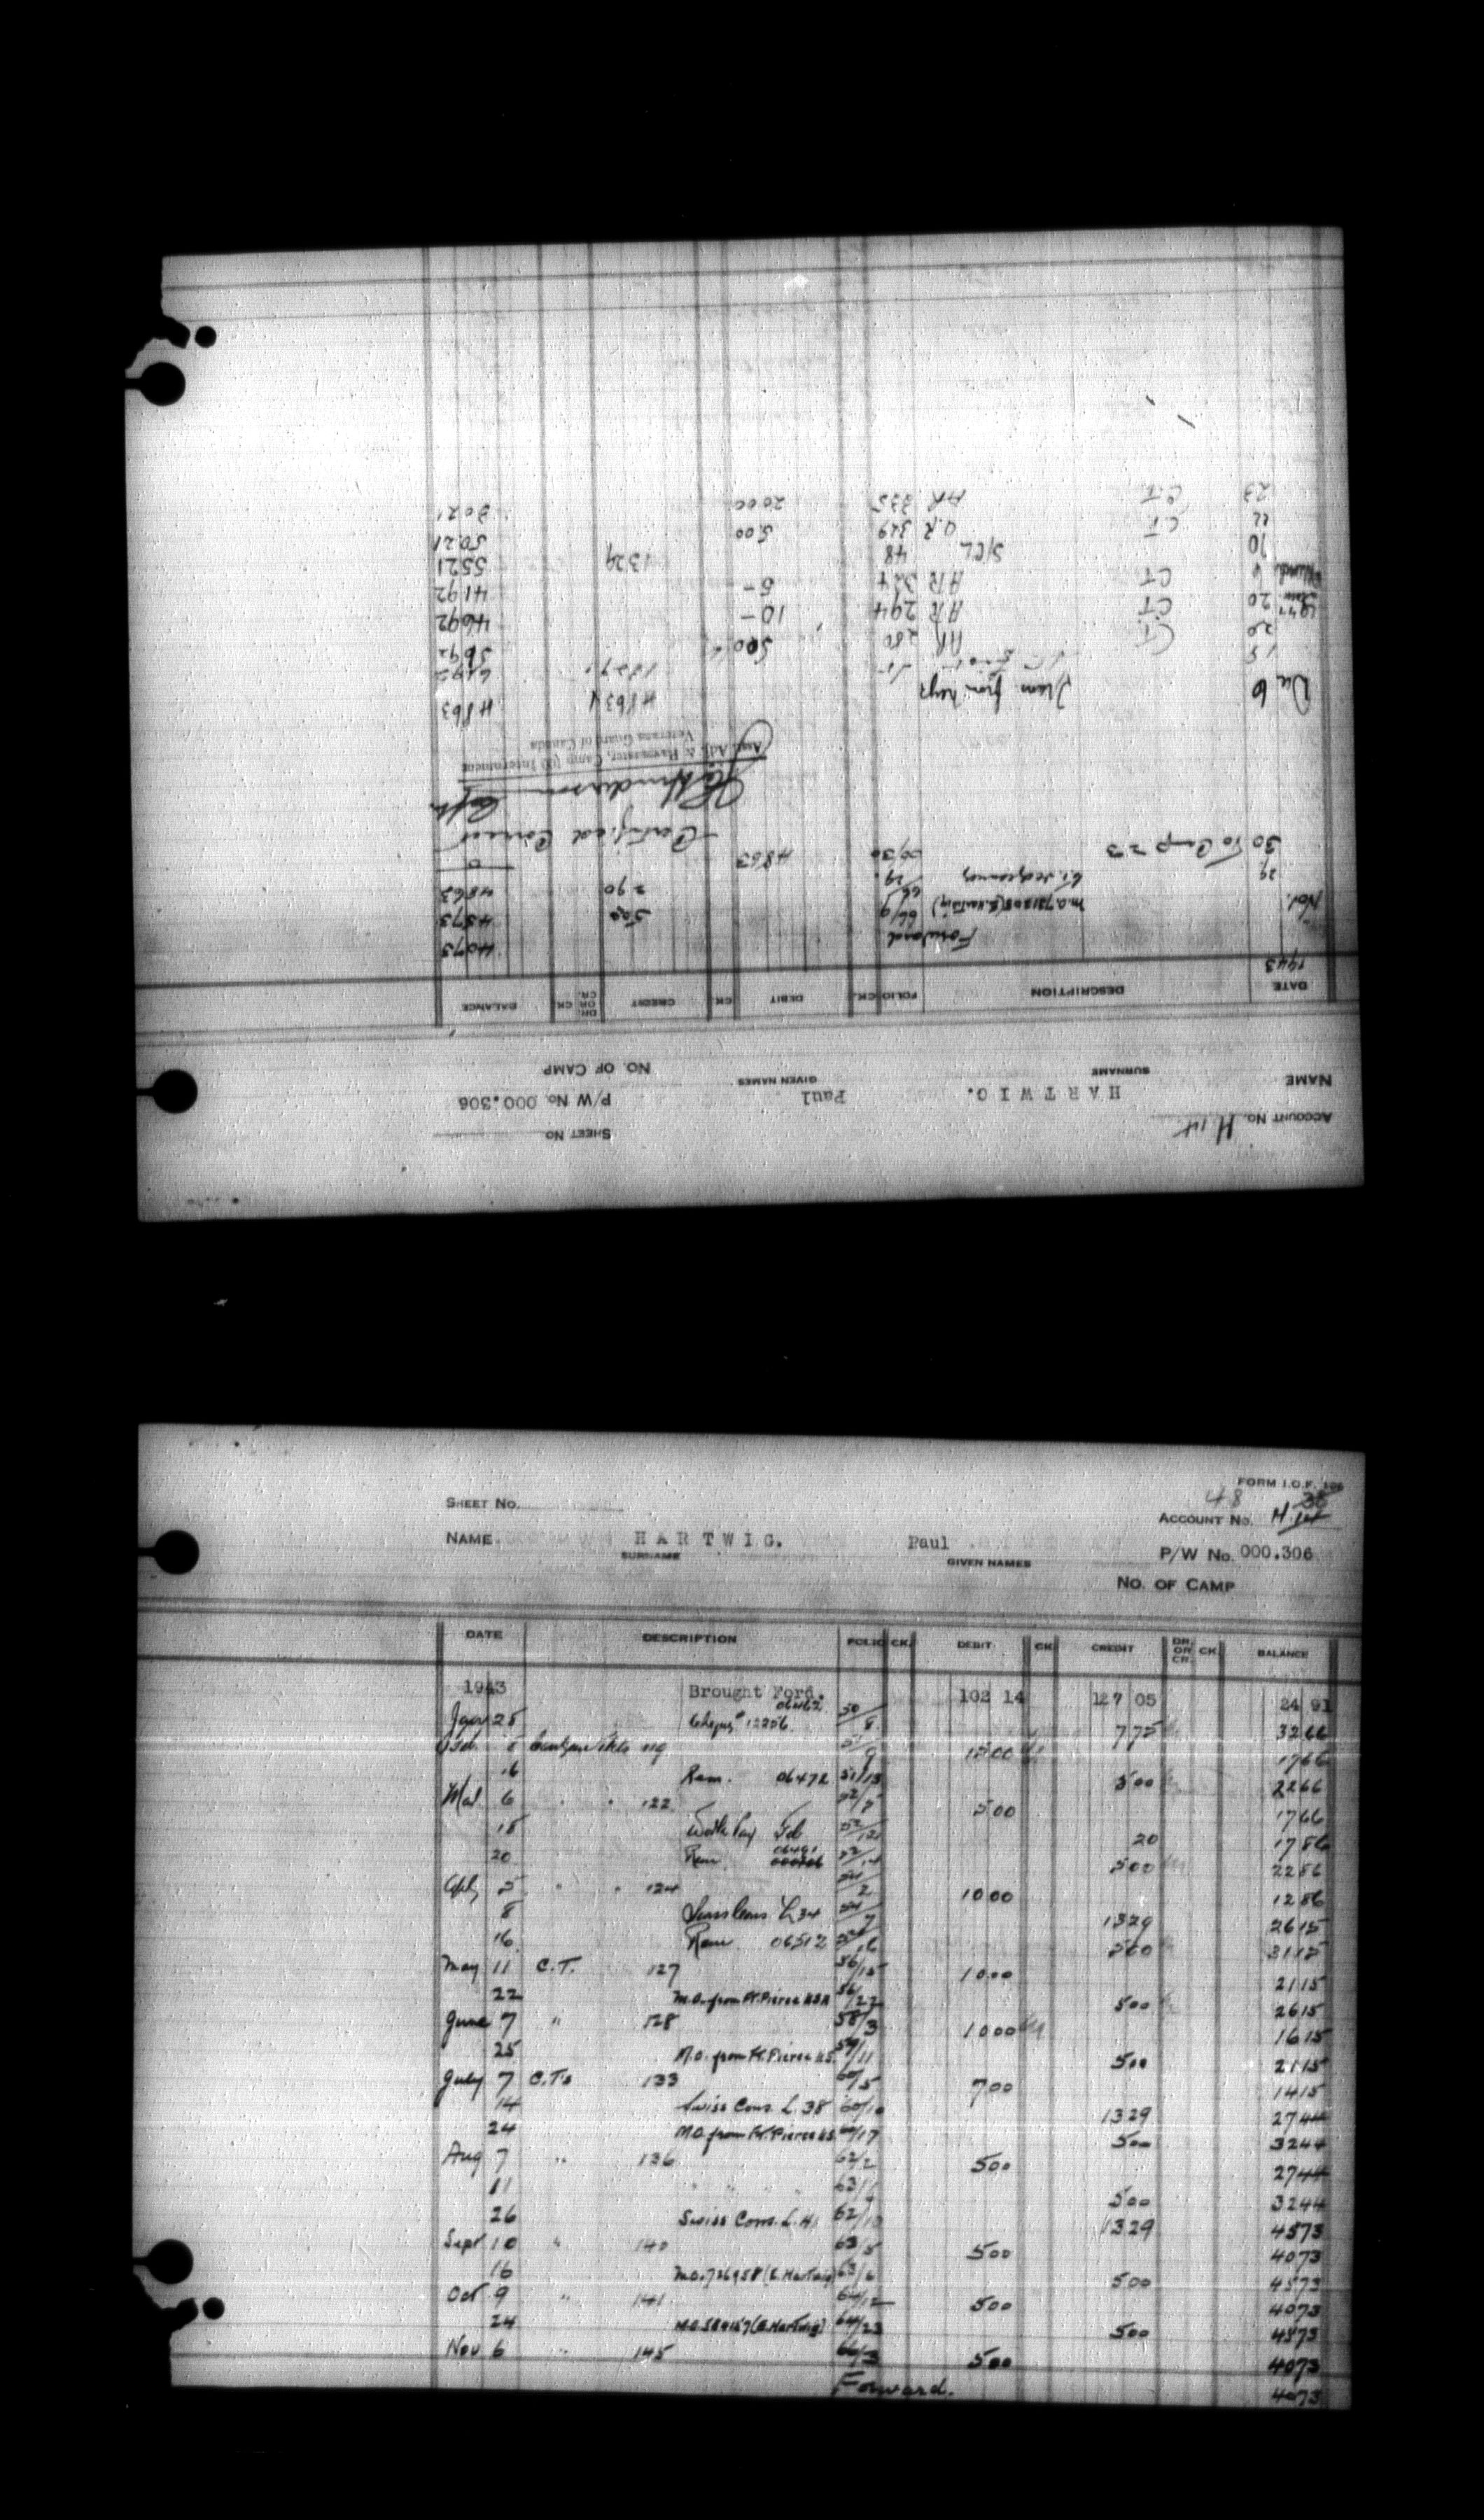 ACCOUNT No. H 14
SHEET No.
NAME HARTWIG. Paul P/W No. 000.306
SURNAME GIVEN NAMES NO. OF CAMP
DATE DESCRIPTION FOLIO CK. DEBIT CK. CREDIT DR. OR CR. CK. BALANCE
1943 Forward 4073
Nov. 66/9 500 4573
29 66/29 290 4863
30 To Camp 23 00/30 4863 0
Certified Correct
Henderson Capt
& Paymaster, Camp 100 Internment
Veterans Guard of Canada
Dec 6 4863 4863
15 1329 6192
20 C.T. AR 280 500 5692
1944 Jan 20 CT AR 294 10 - 4692
6 CT AR 324 5 - 4192
10 S/CL 48 1329 5521
22 CT A.R 329 500 5021
23 C.T. AR 335 2000 3021
FORM I.O.F. 106
SHEET No. 48 38
ACCOUNT No. H.14
NAME HARTWIG. Paul P/W No. 000.306
SURNAME GIVEN NAMES
NO. OF CAMP
DATE DESCRIPTION FOLIO CK. DEBIT CK. CREDIT DR. OR CR. CK. BALANCE
1943 Brought Ford. 102 14 127 05 24 91
Jan 25 Cheque # 12256 06462 50/8 775 3266
Feb. 119 1500 1766
16 Rem. 06472 51/15 500 2266
Mar 6 " " 122 500 1766
15 Work Pay Feb 20 1786
20 Rem 06491 500 2286
Apl 5 " " 124 1000 1286
8 Swiss Cons L34 54/7 1329 2615
16 Rem 06512 500 3115
May 11 C.T. 127 56/15 1000 2115
22 M.O. from Ft. Pierce USA 56/22 500 2615
June 7 " 128 58/3 1000 1615
25 M.O. from Ft. Pierce U.S. 59/11 500 2115
July 7 C.T's 133 60/5 700 1415
14 Swiss Cons. L. 38 60/10 1329 2744
24 M.O. from Ft. Pierce U.S. 60/17 500 3244
Aug 7 " 136 62/2 500 2744
11 " " " 500 3244
26 Swiss Cons. L. 1329 4573
Sept 10 " 140 63/5 500 4073
16 M.O. 726958 (E. Hartwig) 63/6 500 4573
Oct 9 " 141 64/12 500 4073
24 (E. Hartwig) 64/23 500 4573
Nov 6 " 145 66/3 500 4073
Forward. 4073